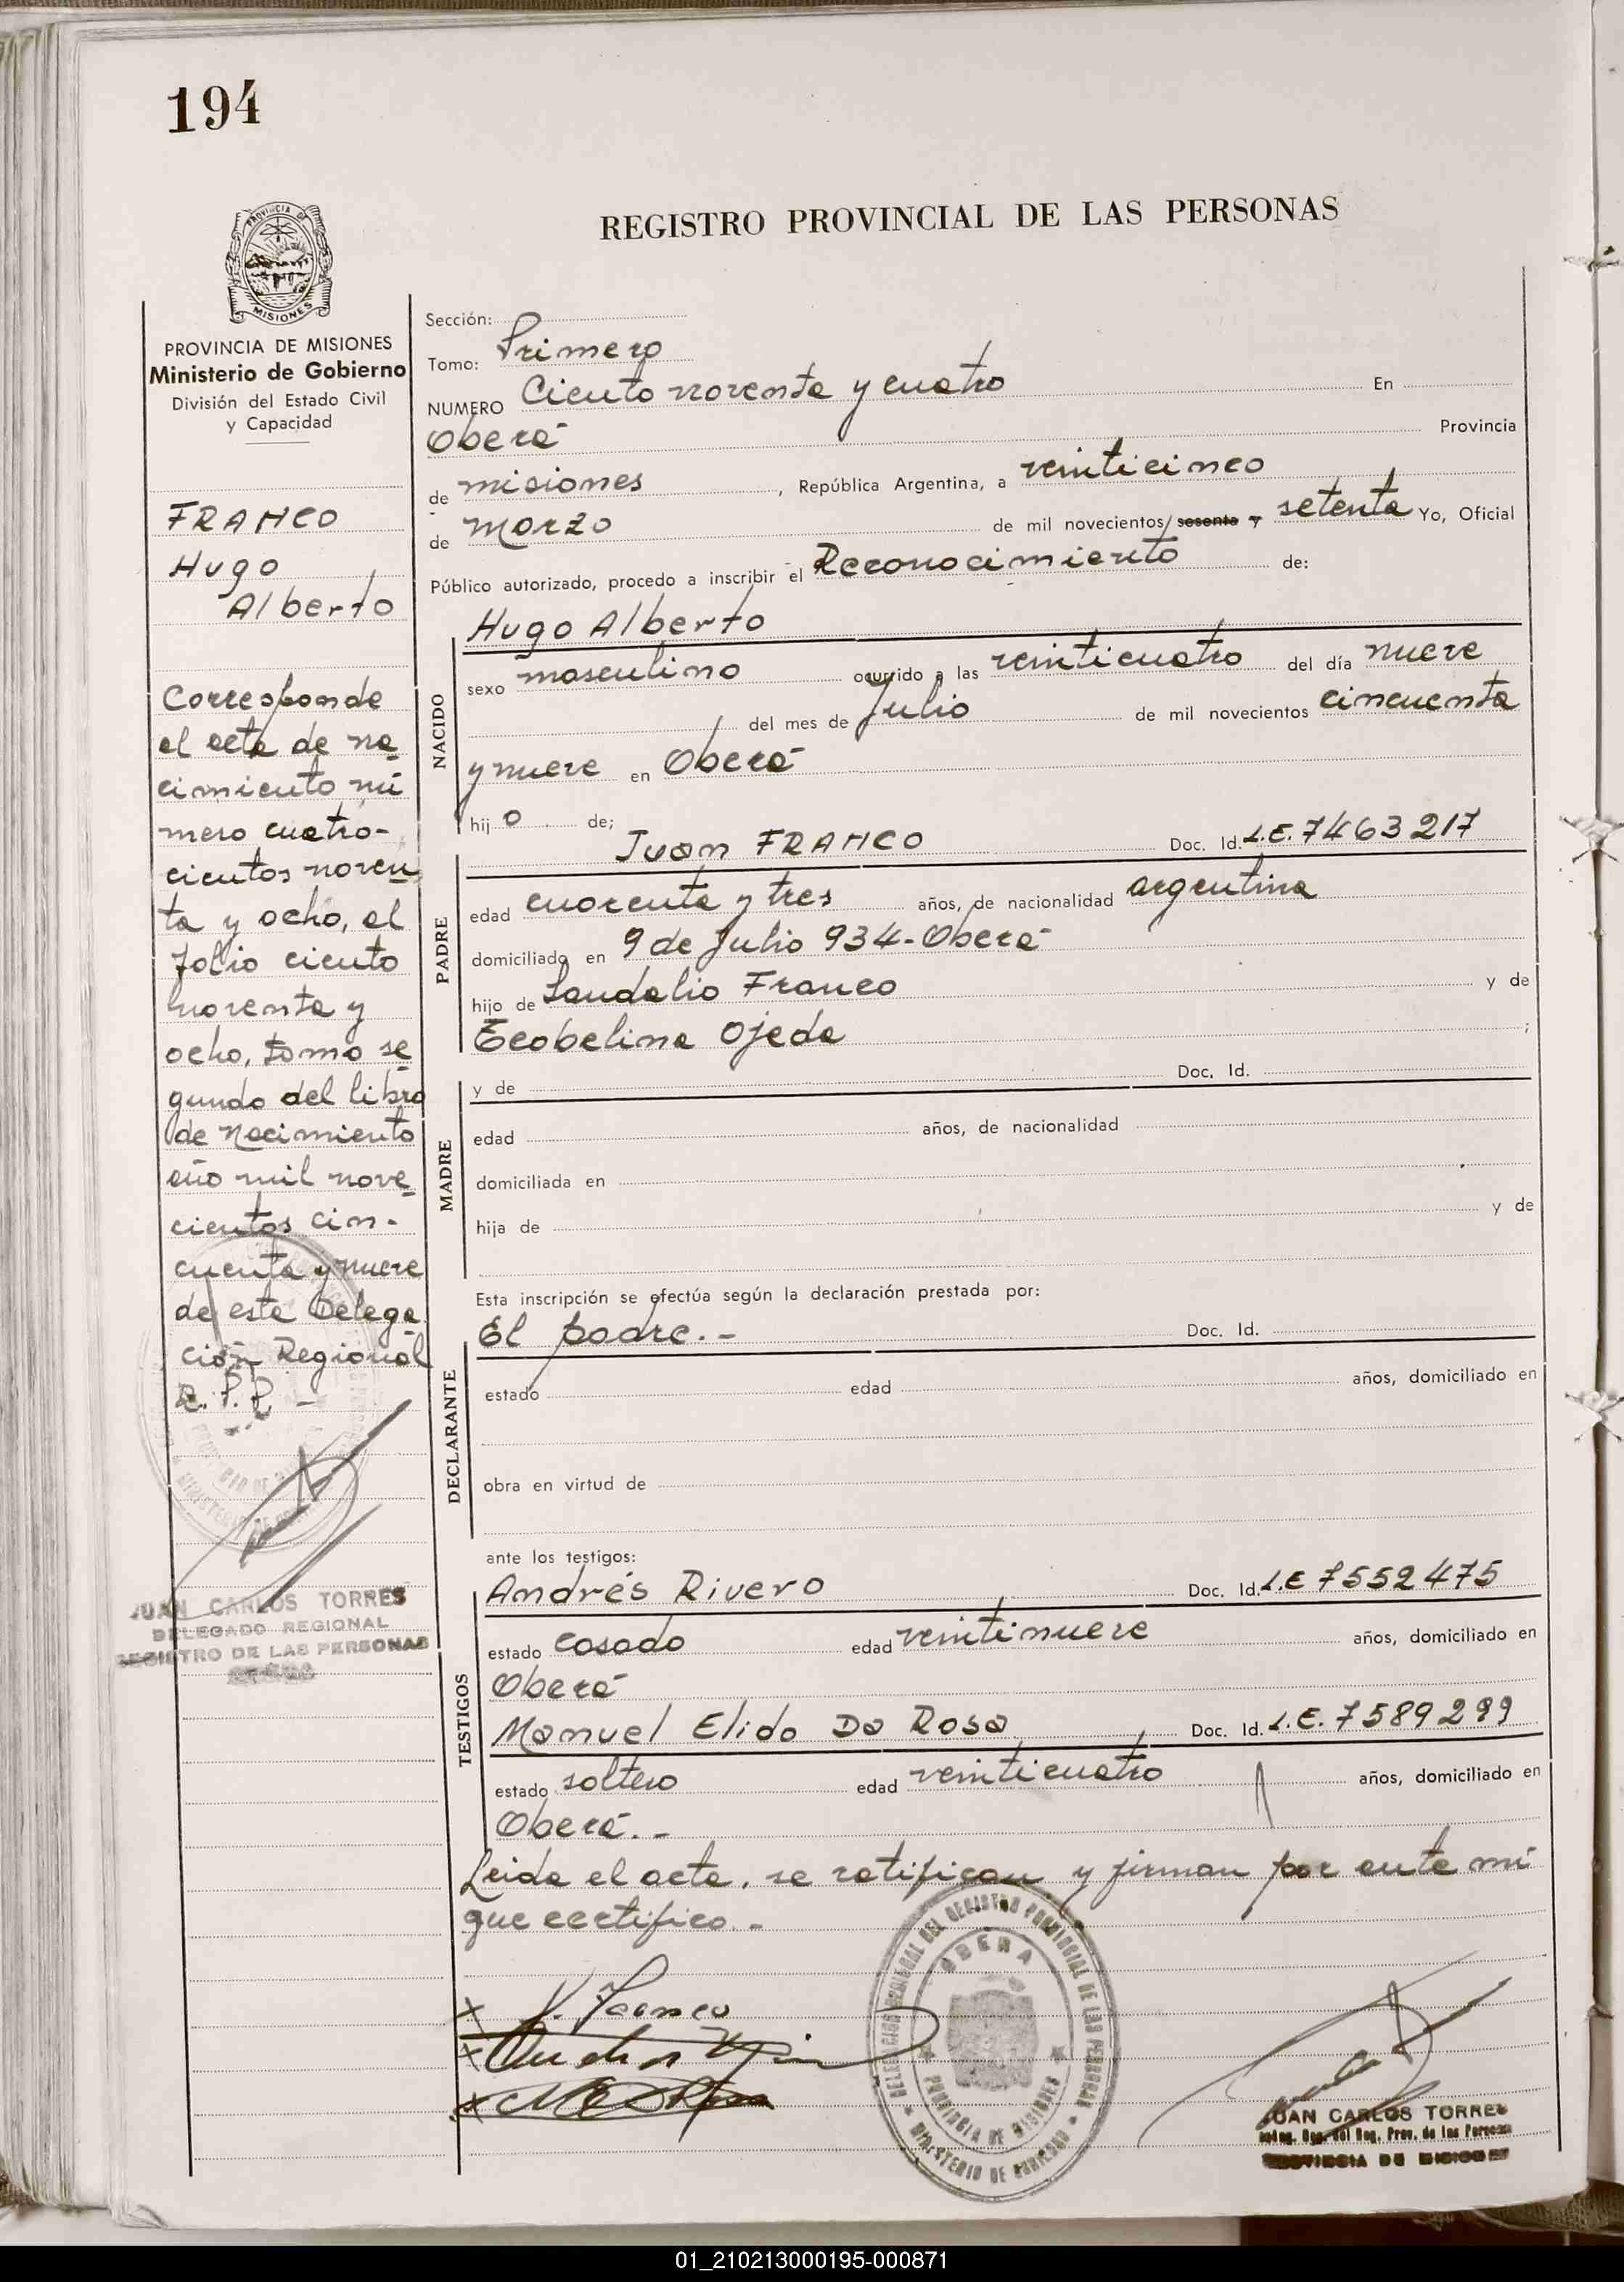 194
PROVINCIA DE
MISIONES
REGISTRO PROVINCIAL DE LAS PERSONAS
PROVINCIA DE MISIONES
Ministerio de Gobierno
División del Estado Civil
y Capacidad
FRANCO
Hugo
Alberto
Corresponde
al acta de na
cimiento nú
mero cuatro-
cientos noven
ta y ocho, al
folio ciento
noventa y
ocho, tomo se
gundo del libro
de Nacimiento
año mil nove
cientos cin-
cuenta y nueve
de esta Delega
ción Regional
R.P.P. -
JUAN CARLOS TORRES
DELEGADO REGIONAL
REGISTRO DE LAS PERSONAS
Sección:
Tomo: Primero
NUMERO Ciento noventa y cuatro En
Oberá Provincia
de misiones, República Argentina, a veinticinco
de marzo de mil novecientos/ sesenta y setenta Yo, Oficial
Público autorizado, procedo a inscribir el Reconocimiento de:
Hugo Alberto
NACIDO
sexo masculino ocurrido a las veinticuatro del día nueve
del mes de Julio de mil novecientos cincuenta
y nueve en Oberá
hijo de;
Juan FRANCO Doc. Id. L.E. 7463217
PADRE
edad cuarenta y tres años, de nacionalidad argentina
domiciliado en 9 de Julio 934-Oberá
hijo de Sandalio Franco y de
Ecobelina Ojeda ;
y de Doc. Id.
MADRE
edad años, de nacionalidad
domiciliada en
hija de y de
Esta inscripción se efectúa según la declaración prestada por:
El padre.- Doc. Id.
DECLARANTE
estado edad años, domiciliado en
obra en virtud de
ante los testigos:
Andrés Rivero Doc. Id. L.E 7552475
TESTIGOS
estado casado edad veintinueve años, domiciliado en
Oberá
Manuel Elido Da Rosa Doc. Id. L.E. 7589299
estado soltero edad veinticuatro años, domiciliado en
Oberá.-
Leida el acta, se ratifican y firman por ante mí
que certifico.-
J. Franco
DELEGACION REGIONAL DEL REGISTRO PROVINCIAL DE LAS PERSONAS
OBERA
PROVINCIA DE MISIONES
MINISTERIO DE GOBIERNO
JUAN CARLOS TORRES
Deleg. Reg. del Reg. Prov. de las Personas
PROVINCIA DE MISIONES
01_210213000195-000871